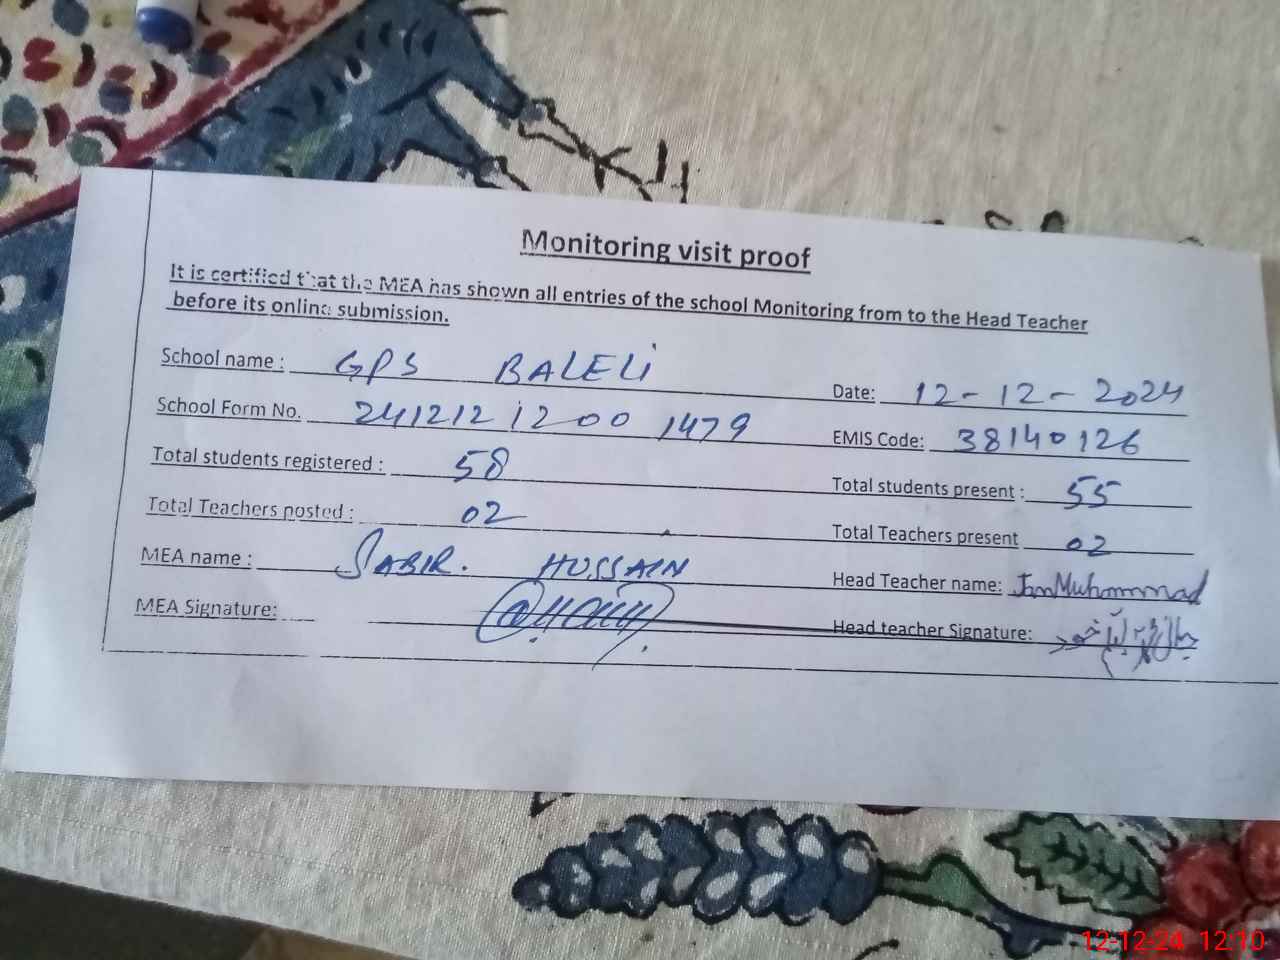 Monitoring visit proof
It is certified that the MEA has shown all entries of the school Monitoring from to the Head Teacher
before its online submission.
School name : GPS BALELi
Date: 12-12-2024
School Form No. 241212 1200 1479
EMIS Code: 38140126
Total students registered : 58
Total students present : 55
Total Teachers posted : 02
Total Teachers present 02
MEA name : SABIR. HUSSAIN
Head Teacher name: Jan Muhammad
MEA Signature:
Head teacher Signature:
12-12-24 12:10